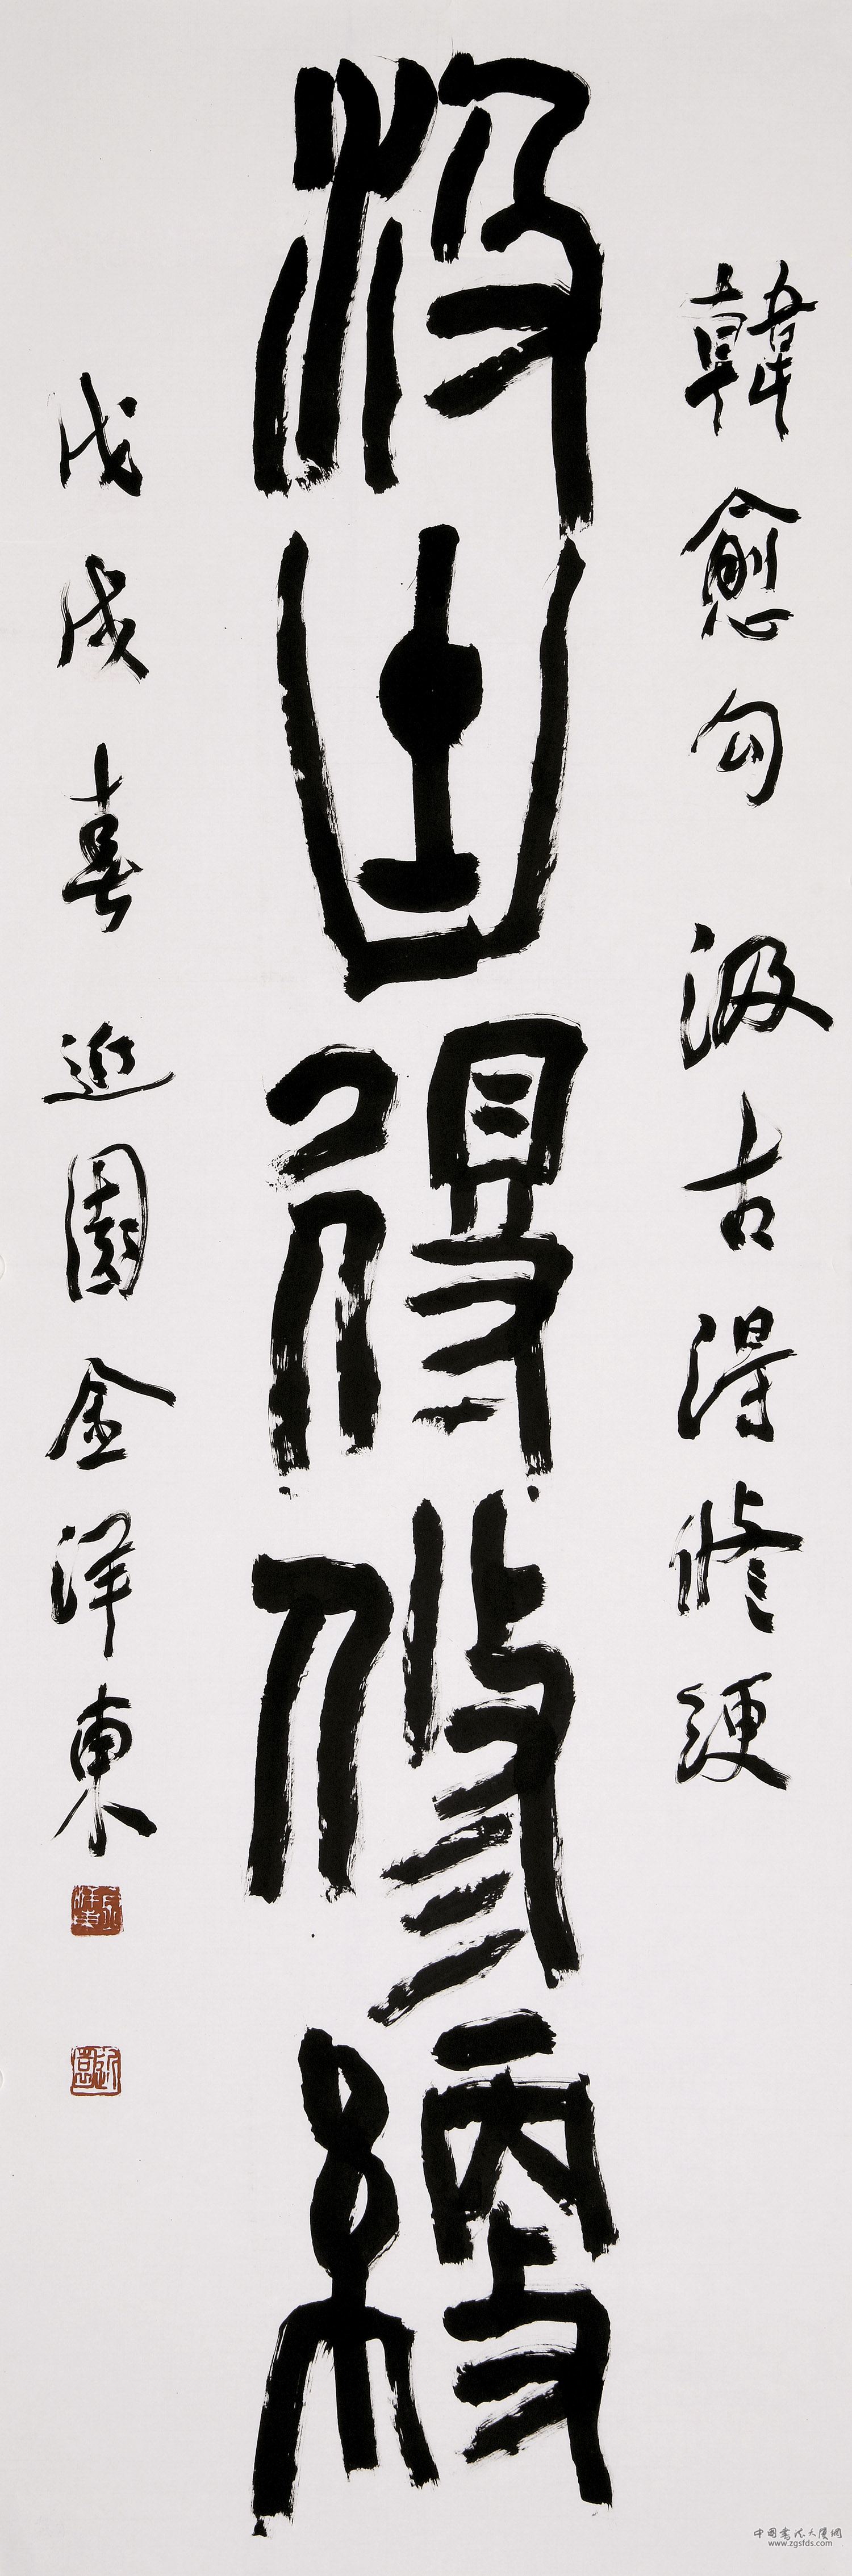 韓愈句 汲古得修綆
汲古得修綆
戊戌春 近園金洋東
中国书法大厦网
www.zgsfds.com